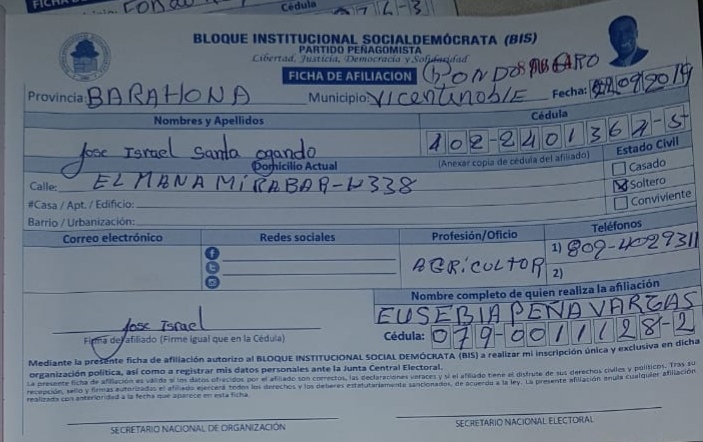 Cédula
BLOQUE INSTITUCIONAL SOCIALDEMÓCRATA (BIS)
PARTIDO PEÑAGOMISTA
Libertad, Justicia, Democracia y Solidaridad
FICHA DE AFILIACION
Provincia: BARAHONA Municipio: Vicentinoble Fecha: 02/09/2019
Nombres y Apellidos Cédula
Jose Israel Santa ogando 402-2401367-5
Domicilio Actual (Anexar copia de cédula del afiliado) Estado Civil
Calle: EL MANAMIRABAR-W338
Casado
Soltero
Conviviente
#Casa / Apt. / Edificio:
Barrio / Urbanización:
Correo electrónico Redes sociales Profesión/Oficio Teléfonos
AGRICULTOR 1) 809-4029311
2)
Nombre completo de quien realiza la afiliación
EUSEBIA PEÑA VARGAS
Jose Israel
Firma del afiliado (Firme igual que en la Cédula) Cédula: 079-0011128-2
Mediante la presente ficha de afiliación autorizo al BLOQUE INSTITUCIONAL SOCIAL DEMÓCRATA (BIS) a realizar mi inscripción única y exclusiva en dicha
organización política, así como a registrar mis datos personales ante la Junta Central Electoral.
La presente ficha de afiliación es válida si los datos ofrecidos por el afiliado son correctos, las declaraciones veraces y si el afiliado tiene el disfrute de sus derechos civiles y políticos. Tras su
recepción, sello y firmas autorizadas el afiliado ejercerá todos los derechos y los deberes estatutariamente sancionados, de acuerdo a la ley. La presente afiliación anula cualquier afiliación
realizada con anterioridad a la fecha que aparece en esta ficha.
SECRETARIO NACIONAL DE ORGANIZACIÓN SECRETARIO NACIONAL ELECTORAL